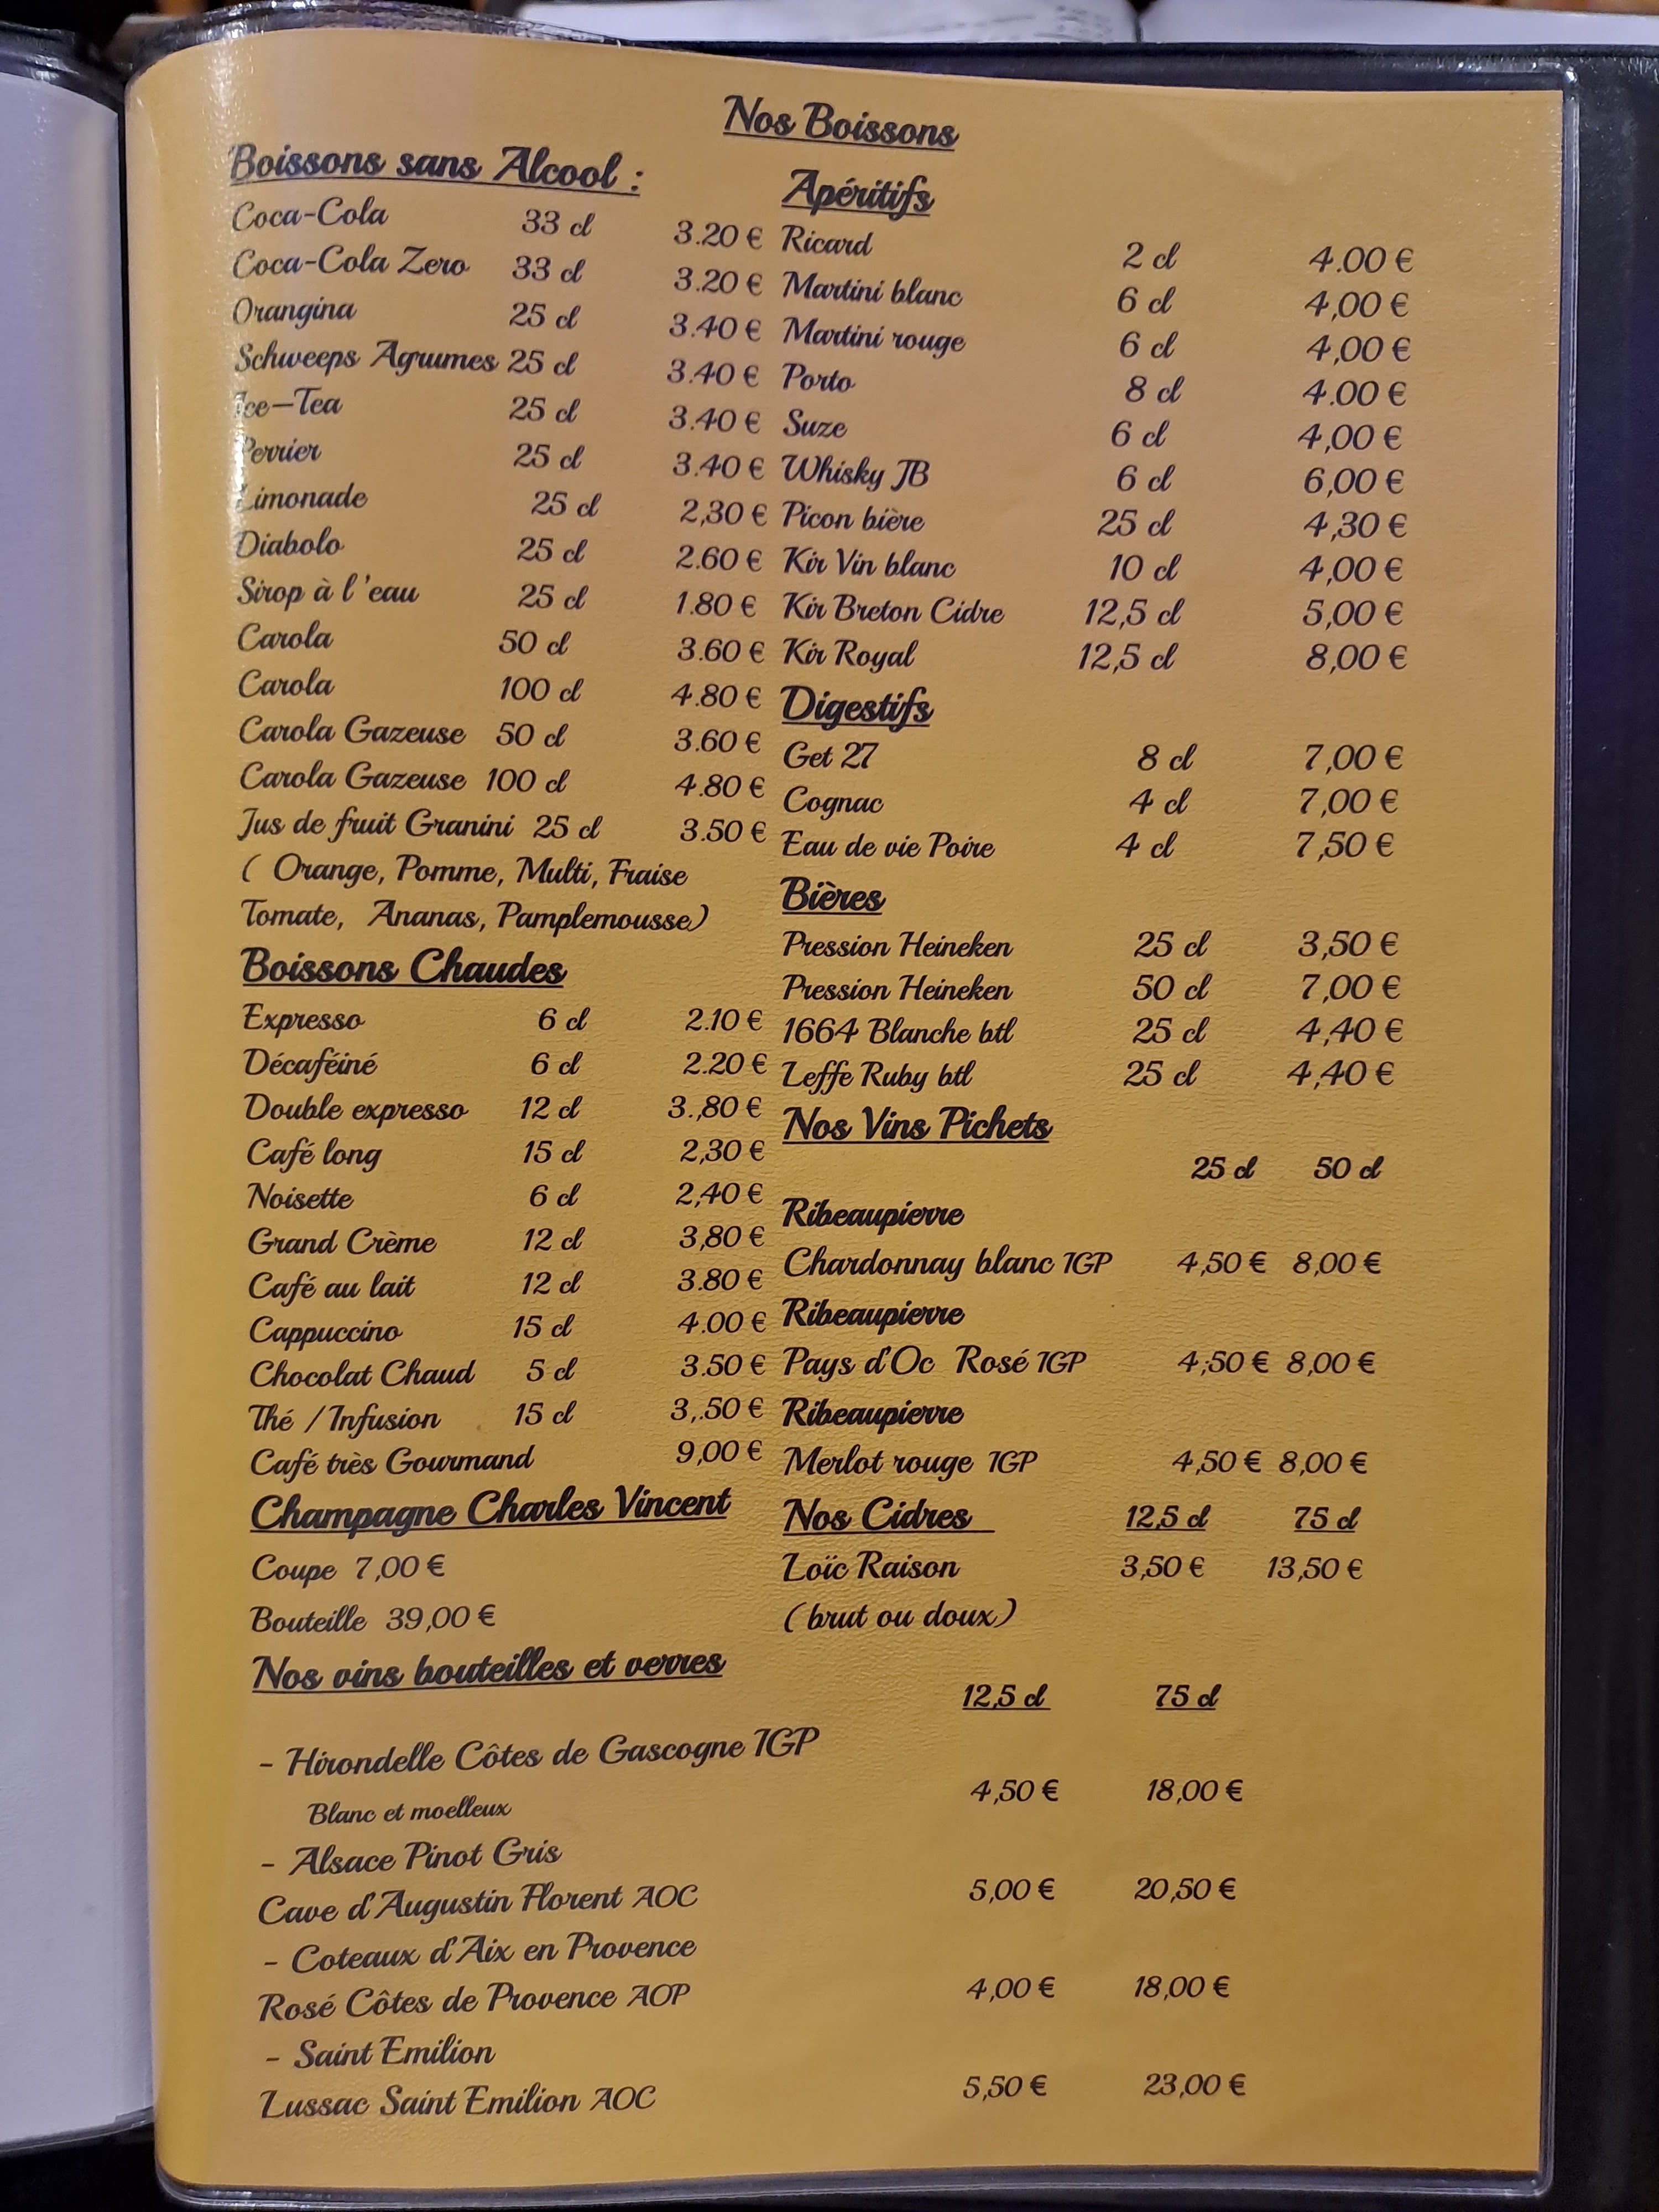 Nos Boissons
Boissons sans Alcool :
Coca-Cola 33 cl 3.20 €
Coca-Cola Zero 33 cl 3.20 €
Orangina 25 cl 3.40 €
Schweeps Agrumes 25 cl 3.40 €
Ice-Tea 25 cl 3.40 €
Perrier 25 cl 3.40 €
Limonade 25 cl 2,30 €
Diabolo 25 cl 2.60 €
Sirop à l'eau 25 cl 1.80 €
Carola 50 cl 3.60 €
Carola 100 cl 4.80 €
Carola Gazeuse 50 cl 3.60 €
Carola Gazeuse 100 cl 4.80 €
Jus de fruit Granini 25 cl 3.50 €
( Orange, Pomme, Multi, Fraise
Tomate, Ananas, Pamplemousse)
Boissons Chaudes
Expresso 6 cl 2.10 €
Décaféiné 6 cl 2.20 €
Double expresso 12 cl 3.,80 €
Café long 15 cl 2,30 €
Noisette 6 cl 2,40 €
Grand Crème 12 cl 3,80 €
Café au lait 12 cl 3.80 €
Cappuccino 15 cl 4.00 €
Chocolat Chaud 5 cl 3.50 €
Thé / Infusion 15 cl 3,.50 €
Café très Gourmand 9,00 €
Champagne Charles Vincent
Coupe 7,00 €
Bouteille 39,00 €
Apéritifs
Ricard 2 cl 4.00 €
Martini blanc 6 cl 4,00 €
Martini rouge 6 cl 4,00 €
Porto 8 cl 4.00 €
Suze 6 cl 4,00 €
Whisky JB 6 cl 6,00 €
Picon bière 25 cl 4,30 €
Kir Vin blanc 10 cl 4,00 €
Kir Breton Cidre 12,5 cl 5,00 €
Kir Royal 12,5 cl 8,00 €
Digestifs
Get 27 8 cl 7,00 €
Cognac 4 cl 7,00 €
Eau de vie Poire 4 cl 7,50 €
Bières
Pression Heineken 25 cl 3,50 €
Pression Heineken 50 cl 7,00 €
1664 Blanche btl 25 cl 4,40 €
Leffe Ruby btl 25 cl 4,40 €
Nos Vins Pichets
25 cl 50 cl
Ribeaupierre
Chardonnay blanc IGP 4,50 € 8,00 €
Ribeaupierre
Pays d'Oc Rosé IGP 4;50 € 8,00 €
Ribeaupierre
Merlot rouge IGP 4,50 € 8,00 €
Nos Cidres 12,5 cl 75 cl
Loïc Raison 3,50 € 13,50 €
( brut ou doux)
Nos vins bouteilles et verres
12,5 cl 75 cl
- Hirondelle Côtes de Gascogne IGP
Blanc et moelleux 4,50 € 18,00 €
- Alsace Pinot Gris
Cave d'Augustin Florent AOC 5,00 € 20,50 €
- Coteaux d'Aix en Provence
Rosé Côtes de Provence AOP 4,00 € 18,00 €
- Saint Emilion
Lussac Saint Emilion AOC 5,50 € 23,00 €